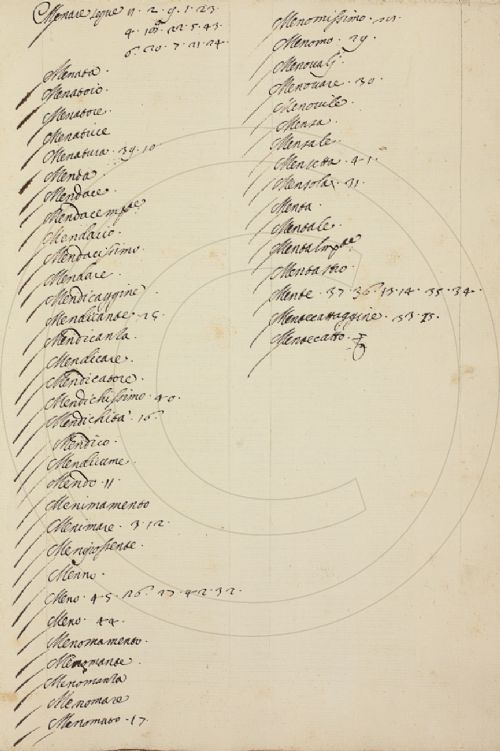 Menare segue 11. 2. 9. 1. 23
4. 10. 22. 5. 43.
6. 20. 7. 21. 24.
Menata.
Menatoio.
Menatore.
Menatrice
Menatura. 39. 10
Menda
Mendace.
Mendacemte
Mendacio.
Mendacissimo.
Mendare.
Mendicaggine.
Mendicante.
Mendicanza.
Mendicare.
Mendicatore.
Mendichissimo. 40.
Mendichità. 16.
Mendico.
Mendicume.
Mendo. 11.
Menimamento
Menimare. 3. 12.
Menno.
Meno. 45. 26. 27. 42. 32.
Meno. 44.
Menomamento.
Menomante.
Menomanza
Menomare
Menomato. 17.
Menomissimo.
Menomo. 29.
Menovare. 30.
Menovile.
Mensa.
Mensale.
Mensola. 31.
Menta.
Mentale.
Mentalmte
Mentastro.
Mente. 37. 36. 13. 14. 35. 34.
Mentecattaggine. 33.
Mentecatto.